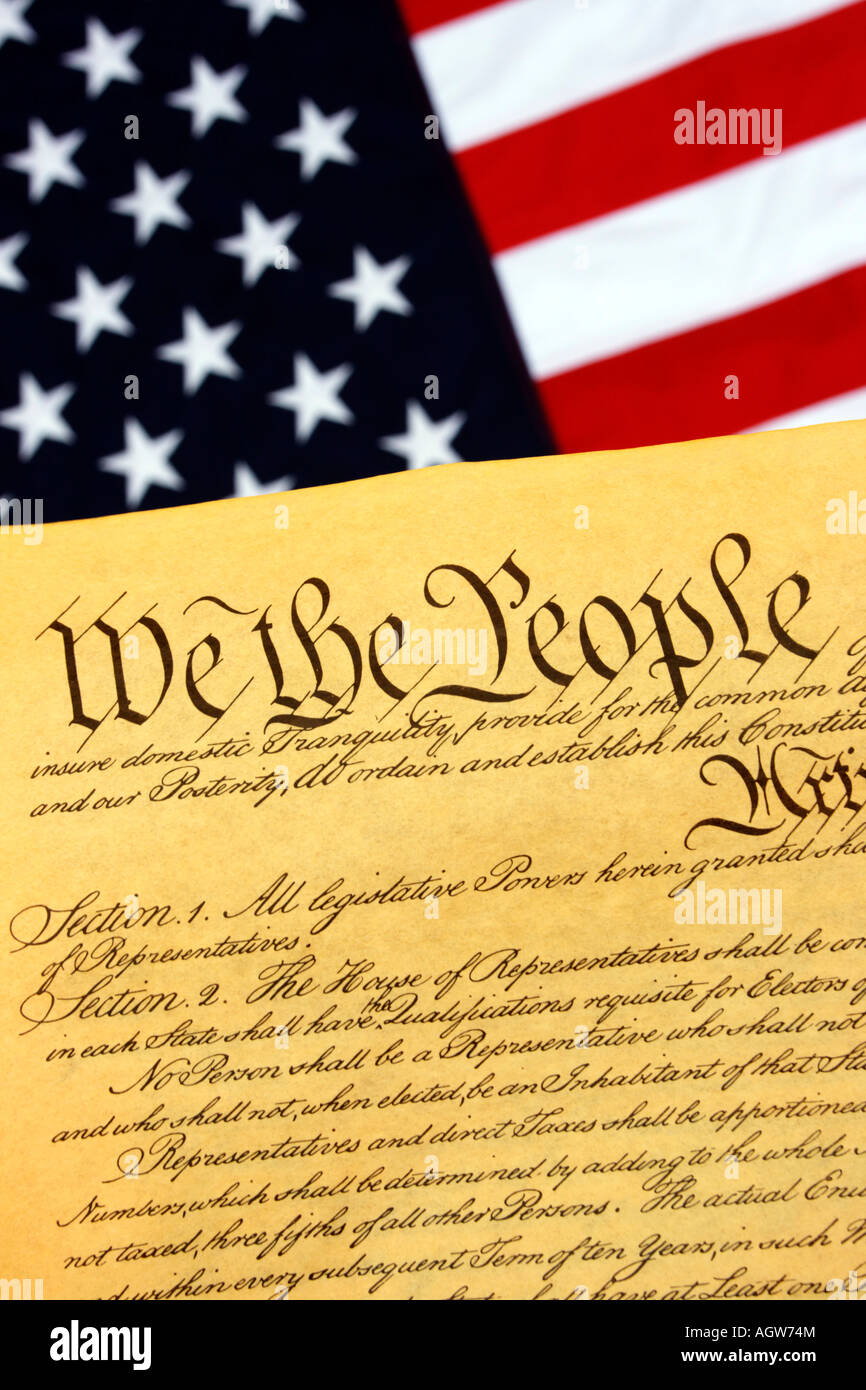 We the People
insure domestic Tranquility, provide for the common
and our Posterity, do ordain and establish this
Section. 1. All legislative Powers herein granted
of Representatives.
Section. 2. The House of Representatives shall be
in each State shall have the Qualifications requisite for Electors
No Person shall be a Representative who shall not
and who shall not, when elected, be an Inhabitant of that
Representatives and direct Taxes shall be apportioned
Numbers, which shall be determined by adding to the whole
not taxed, three fifths of all other Persons. The actual
within every subsequent Term of ten Years, in such
have at Least one
alamy
Image ID: AGW74M
www.alamy.com